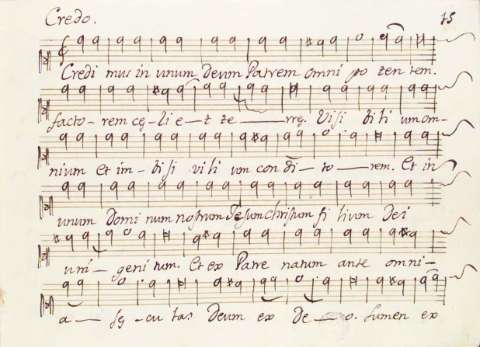 Credo. 75
Credi mus in unum Deum Patrem omni po ten tem.
facto- rem cę-li e-t te—rrę. Visi bi li um om-
nium et im-bi si vi li um con di- to—rem. Et in
unum Domi num nostrum Jesum Christum fi lium Dei
uni- geni tum. Et ex Patre natum ante omni-
a- sę-cu la Deum ex De—o. Lumen ex